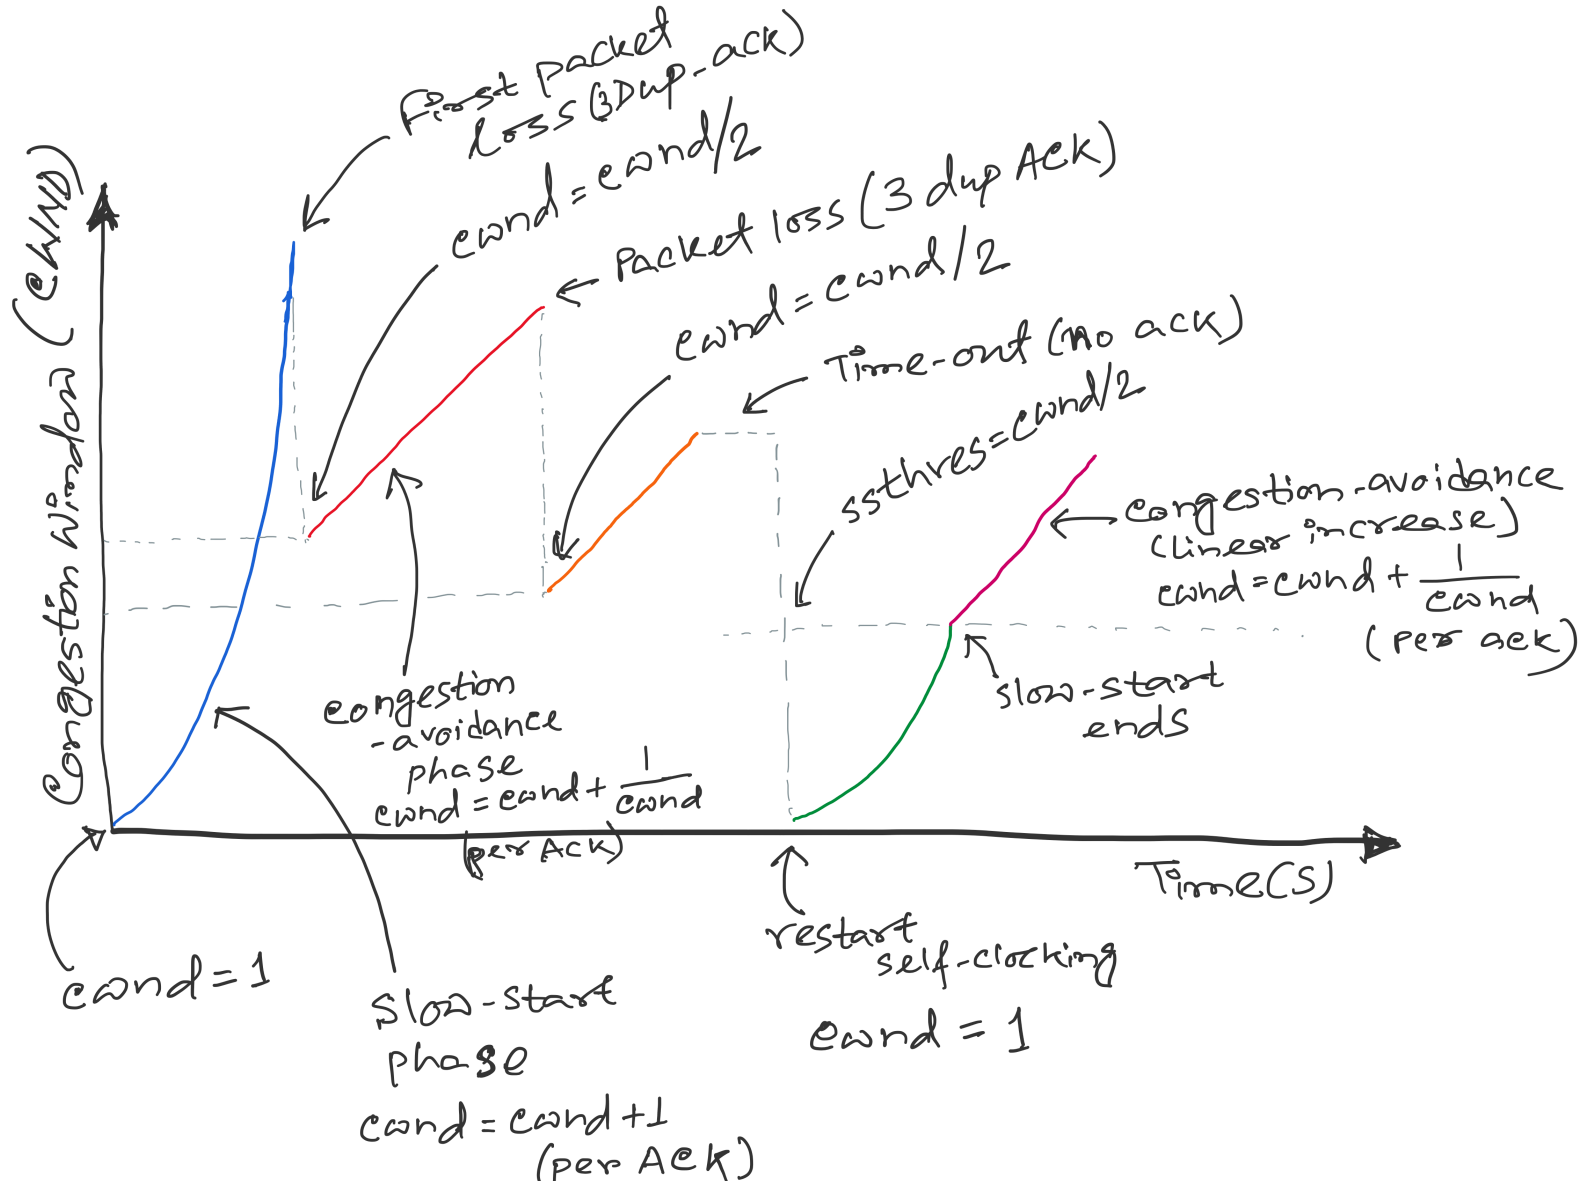 First packet
loss (3Dup-ack)
cwnd = cwnd/2
Packet loss (3 dup ACK)
cwnd = cwnd/2
Time-out (no ack)
ssthres = cwnd/2
Congestion Window (CWND)
congestion-avoidance
(linear increase)
cwnd = cwnd + 1/cwnd
(per ack)
slow-start
ends
congestion
-avoidance
phase
cwnd = cwnd + 1/cwnd
(per ACK)
Time(s)
restart
self-clocking
cwnd = 1
cwnd = 1
slow-start
phase
cwnd = cwnd+1
(per ACK)